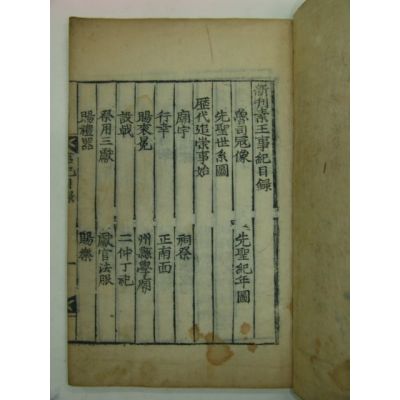 新刊素王事紀目錄
魯司冠像
先聖世系圖 先聖紀年圖
歷代追崇事始
廟宇 祠祭
行幸 正南面
賜袞冕 州縣學廟
設戟 二仲丁祀
祭用三獻 獻官法服
賜禮器 賜樂
事紀目錄
一